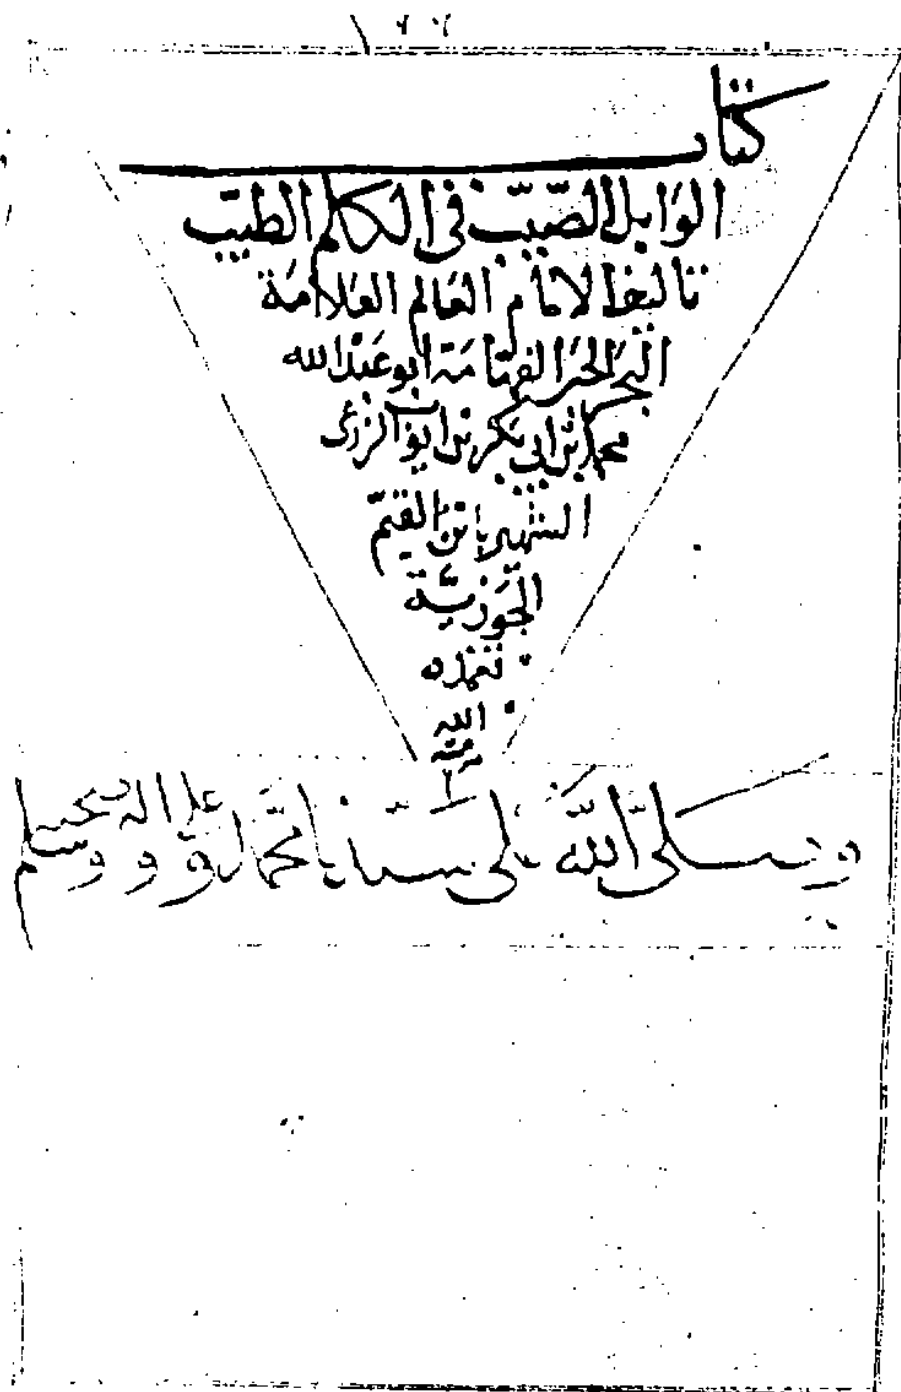 كتاب
الوابل الصّيّب في الكلم الطيّب
تاليف الامام العالم العلامة
البحر الحبر الفهامة ابو عبد الله
محمد بن ابي بكر بن ايوب الزرعى
الشهير بابن القيّم
الجوزيّة
تغمده
الله
برحمته
وصلىّ اللّه على سيّدنا محمّد و على اله وصحبه وسلم